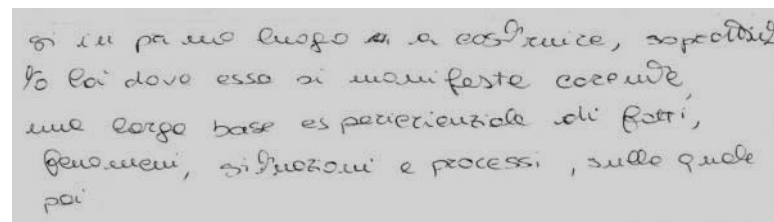 si in primo luogo a a costruire, soprattut
to lai dove essa si manifesta carente,
una larga base esperierienziale di fatti,
fenomeni, situazioni e processi, sulla quale
poi